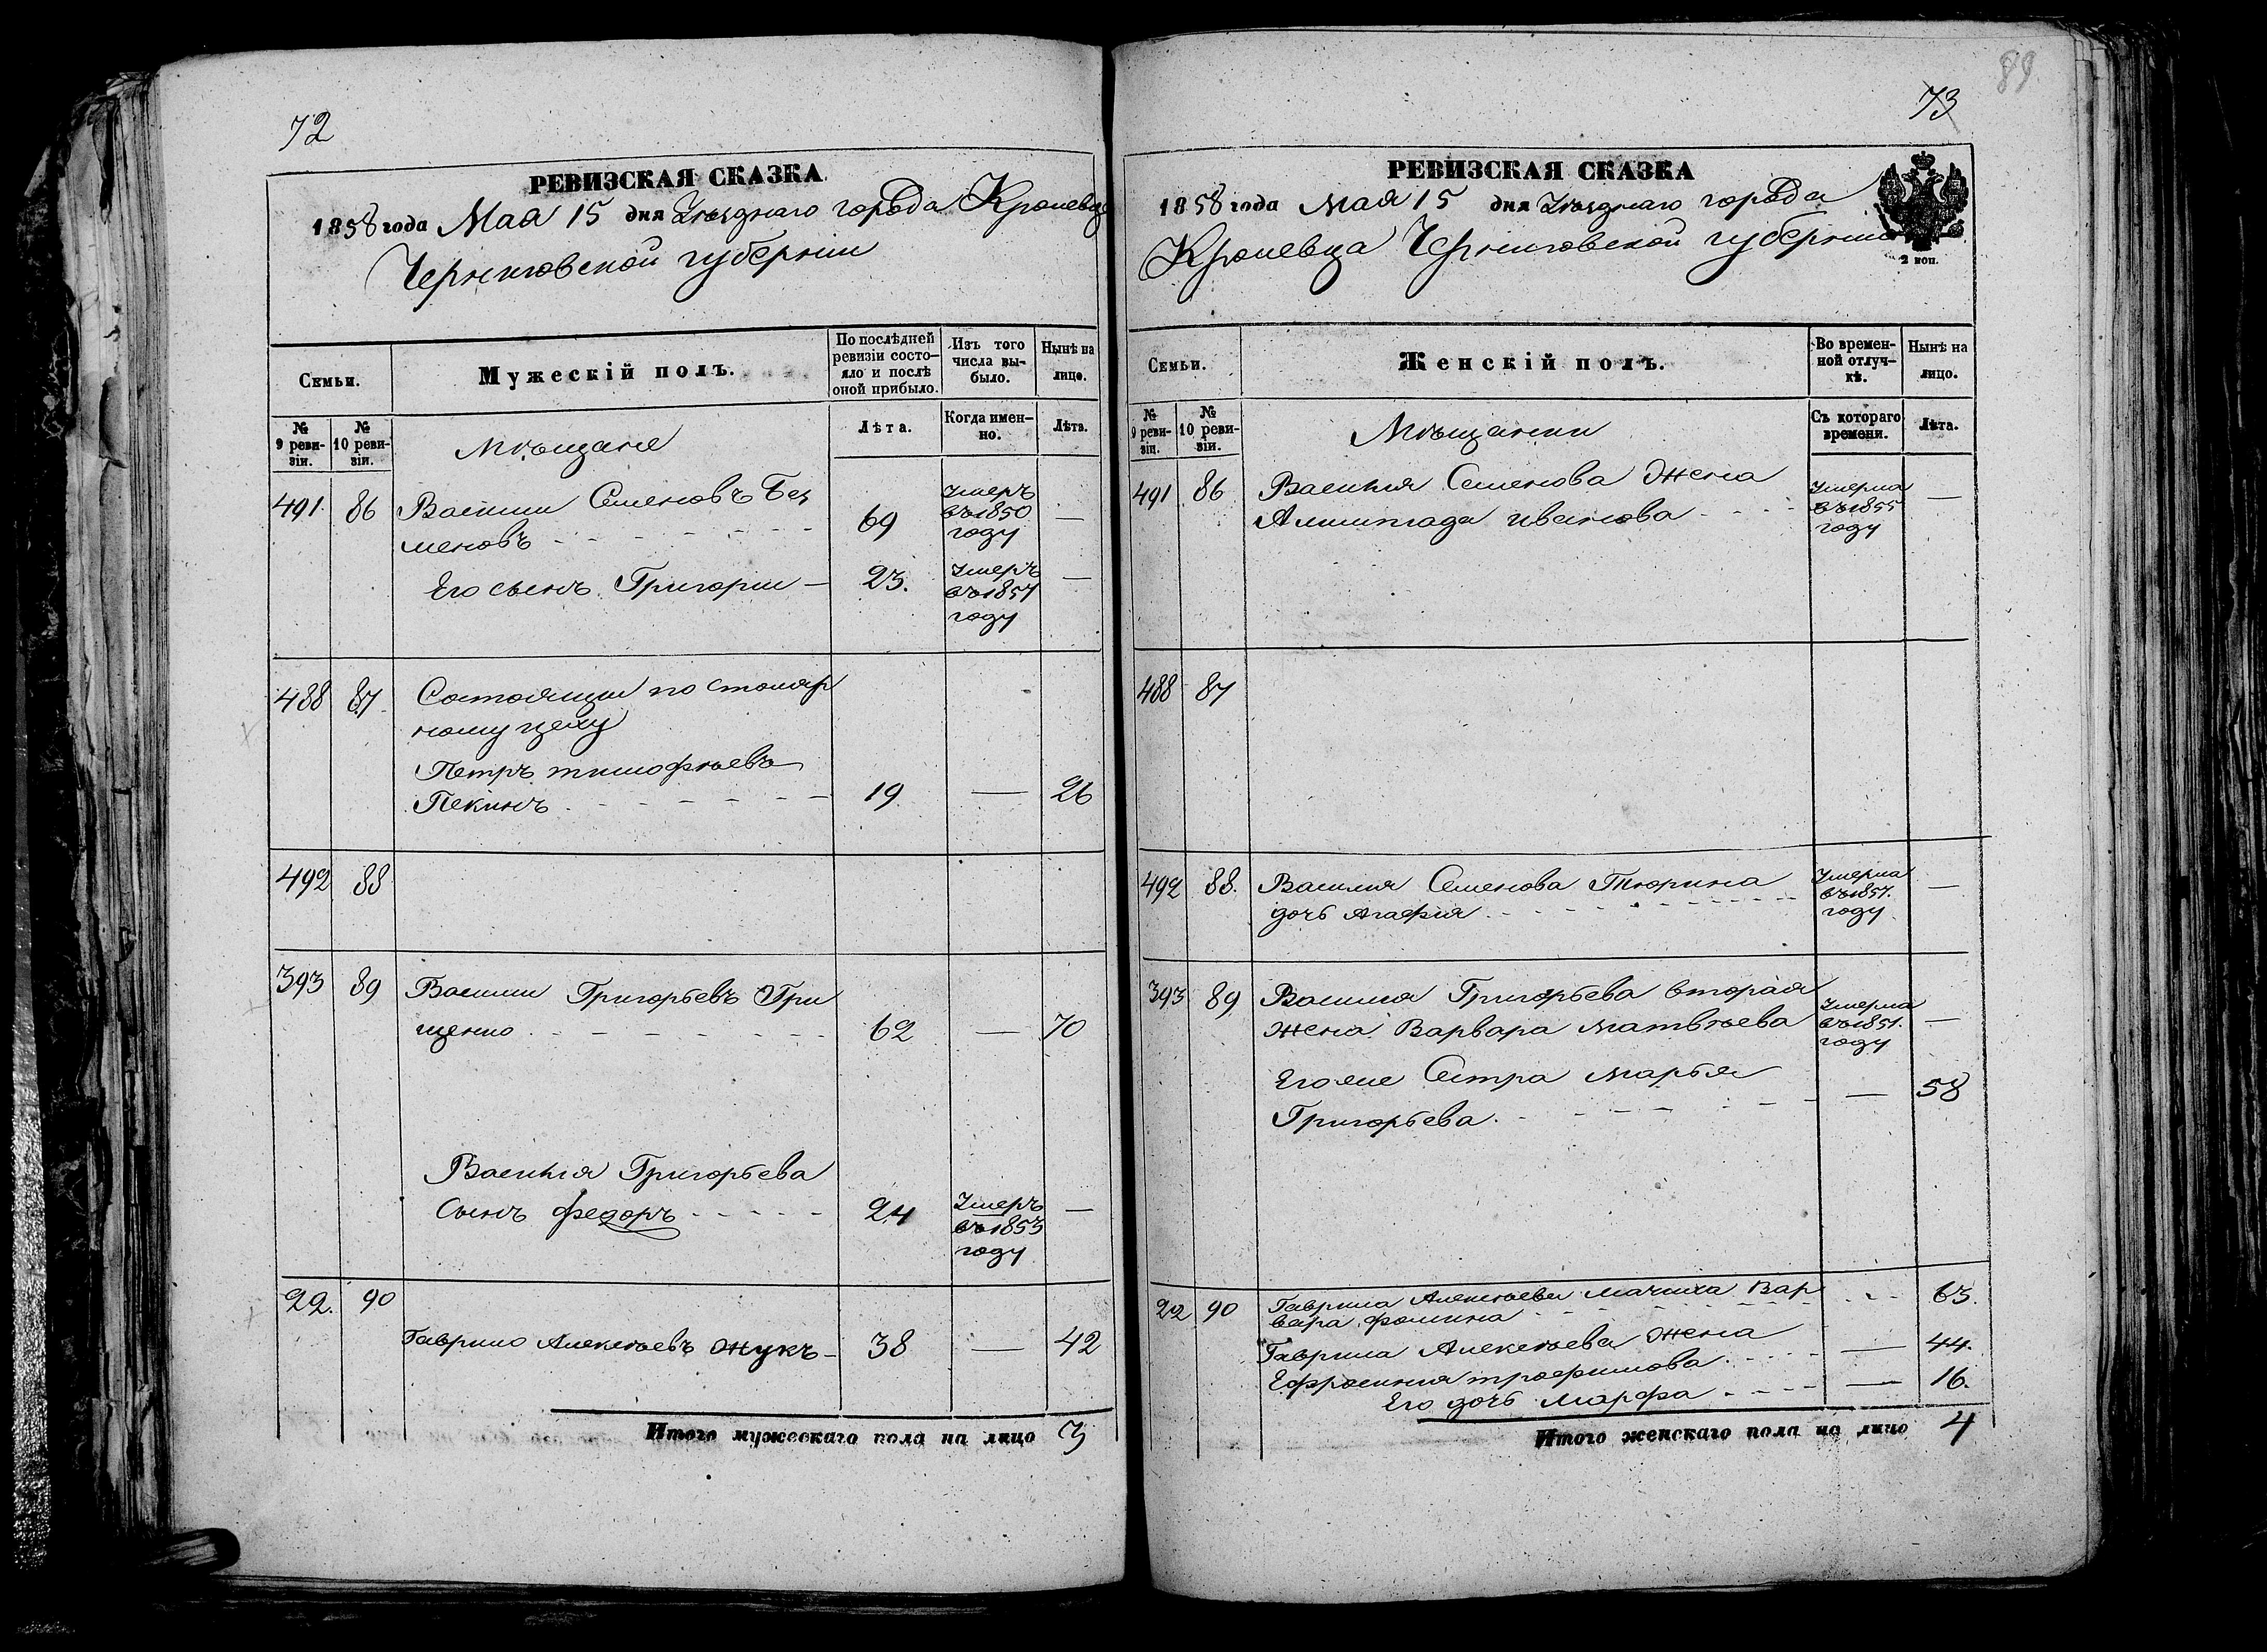 72
РЕВИЗСКАЯ СКАЗКА
1858 года Мая 15 дня Уѣзднаго города Кролевца
Черниговской губерніи
Семьи.
Мужескій полъ.
По послѣдней ревизіи состояло и послѣ оной прибыло.
Изъ того числа выбыло.
Нынѣ на лицо.
№ 9 ревизіи.
№ 10 ревизіи.
Мѣщане
Лѣта.
Когда именно.
Лѣта.
491. 86 Василии Семеновъ Без
69 Умеръ въ 1850 году —
меновъ
Его сынъ Григории — 23. Умеръ въ 1857 году —
488 87 Состоящии по столяр
ному цеху
Петръ тимофѣевъ
Пекинъ 19 — 26
492 88
393 89 Василии Григорьевъ Гри
щенко 62 — 70
Василия Григорьева
Сынъ федоръ 24 Умеръ въ 1853 году —
22. 90
Гаврило Алексѣевъ Жукъ — 38 — 42
Итого мужескаго пола на лицо 3
89
73
РЕВИЗСКАЯ СКАЗКА
1858 года Мая 15 дня Уѣзднаго города
Кролевца Черниговской губерніи
2 коп.
Семьи.
Женскій полъ.
Во временной отлучкѣ.
Нынѣ на лицо.
№ 9 ревизіи.
№ 10 ревизіи.
Мѣщанки
Съ котораго времени.
Лѣта.
491 86 Василия Семенова Жена
Умерла въ 1855 году —
иванова
488 87
492 88. Василия Семенова Тюрина
дочь Агафия Умерла въ 1857. году —
393 89 Василия Григорьева вторая
жена Варвара Матвѣева Умерла въ 1851. году —
Его же Сестра Марья
Григорьева. — 58
22 90 Гаврила Алексѣева Мачиха Вар
вара фомина 63.
Гаврила Алексѣева Жена
Ефросиния трофимова — 44.
Его дочь Марфа — 16.
Итого женскаго пола на лицо 4